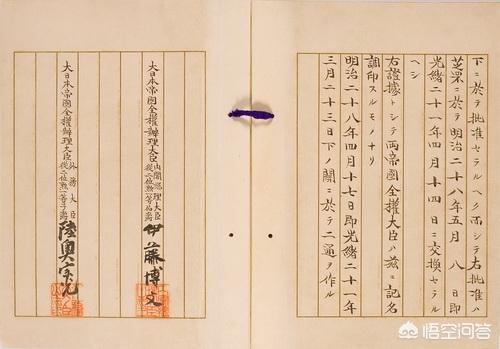 下ニ於テ批准セラルヘク而シテ右批准ハ
芝罘ニ於テ明治二十八年五月八日即
光緒二十一年四月十四日ニ交換セラル
ヘシ
右證據トシテ両帝國全權大臣ハ茲ニ記名
調印スルモノナリ
明治二十八年四月十七日即光緒二十一年
三月二十三日下ノ關ニ於テ二通ヲ作ル
大日本帝國全權辦理大臣內閣總理大臣從二位勲一等伯爵伊藤博文
大日本帝國全權辦理大臣外務大臣從二位勲一等子爵陸奥宗光
悟空问答